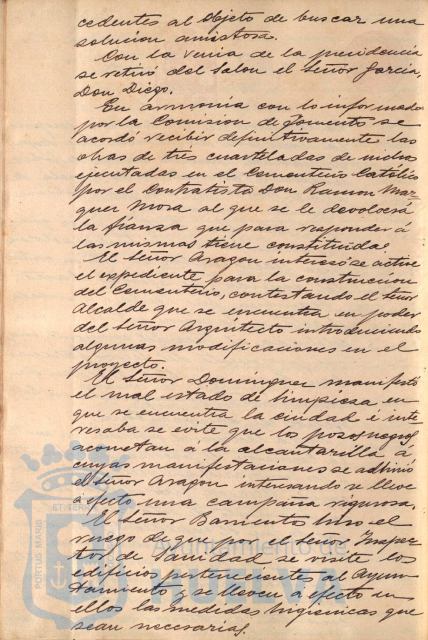 cedentes al objeto de buscar una
solucion amistosa.
Con la venia de la presidencia
se retiró del Salon el Señor García,
Don Diego.
En armonía con lo informado
por la Comision de fomento se
acordó recibir definitivamente las
obras de tres cuarteladas de nichos
ejecutadas en el Cementerio Católico
por el Contratista Don Ramon Mar
quez Mora al que se le devolverá
la fianza que para responder á
las mismas tiene constituida.
El Señor Aragon interesó se active
el expediente para la construccion
del Cementerio, contestando el Señor
Alcalde que se encuentra en poder
del Señor Arquitecto introduciendo
algunas modificaciones en el
proyecto.
El Señor Dominguez manifestó
el mal estado de limpieza en
que se encuentra la ciudad é inte
resaba se evite que los pozos negros
acometan á la alcantarilla á
cuyas manifestaciones se adhirió
el Señor Aragon interesando se lleve
a efecto una campaña vigorosa.
El Señor Barrientos hizo el
ruego de que por el Señor Inspec
tor de Sanidad se visite los
edificios pertenecientes al Ayun
tamiento y se lleven a efecto en
ellos las medidas higiénicas que
sean necesarias.
PORTUS MARIS
ET TERRAE
Ayuntamiento de